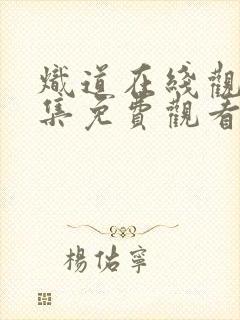 熾道在綫觀
集免費觀看
楊佑寧